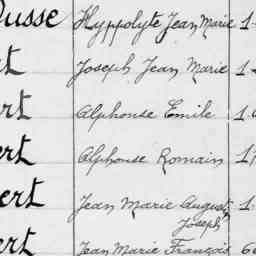 Ousse Hyppolyte Jean Marie 1
Joseph Jean Marie 1
Alphonse Emile 1
ert Alphonse Romain
ert Jean Marie August
Joseph
ert Jean Marie François 6